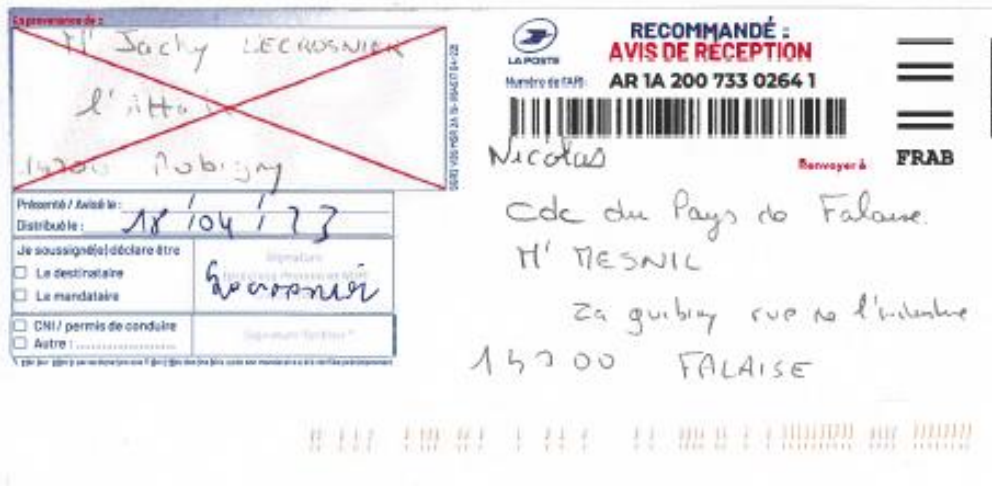 En provenance de :
Mr Jacky LECROSNIER
14700 Aubigny
Présenté / Avisé le : / /
Distribué le : 18 / 04 / 23
Je soussigné(e) déclare être
Le destinataire
Le mandataire
Signature
Lecrosnier
CNI / permis de conduire
Autre :
LA POSTE
RECOMMANDÉ :
AVIS DE RÉCEPTION
Numéro de l'AR : AR 1A 200 733 0264 1
Nicolas
Renvoyer à
FRAB
Cdc du Pays de Falaise
Mr MESNIL
Za guibray rue de l'industrie
14700 FALAISE